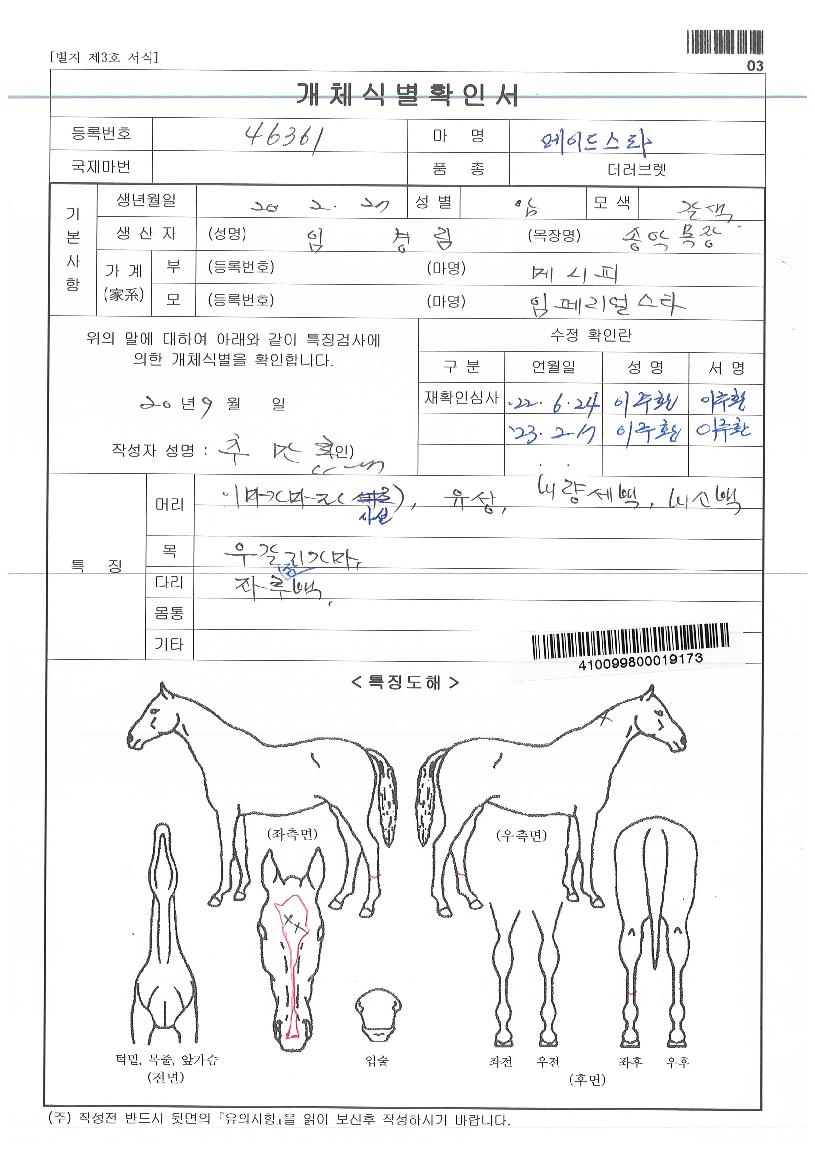 [별지 제3호 서식]
03
개체식별확인서
등록번호 46361 마 명 메이드스타
국제마번 품 종 더러브렛
기본사항
생년월일 20 2. 27 성별 암 모색 갈색
생 산 자 (성명) 임 경 림 (목장명) 송악목장
가계(家系) 부 (등록번호) (마명) 메시피
모 (등록번호) (마명) 임페리얼스타
위의 말에 대하여 아래와 같이 특징검사에
의한 개체식별을 확인합니다.
20 년 9 월 일
작성자 성명 : (인)
수정 확인란
구 분 언월일 성 명 서 명
재확인심사 '22. 6. 24 이주환 이주환
'23. 2. 17 이주환 이주환
특 징
머리 유상, 비량세백, 비소백
목
다리 좌후백.
몸통
기타
410099800019173
< 특징도해 >
(좌측면)
(우측면)
턱밑, 목줄, 앞가슴
(전면)
입술
좌전 우전 좌후 우후
(후면)
(주) 작성전 반드시 뒷면의 『유의사항』을 읽어 보신후 작성하시기 바랍니다.